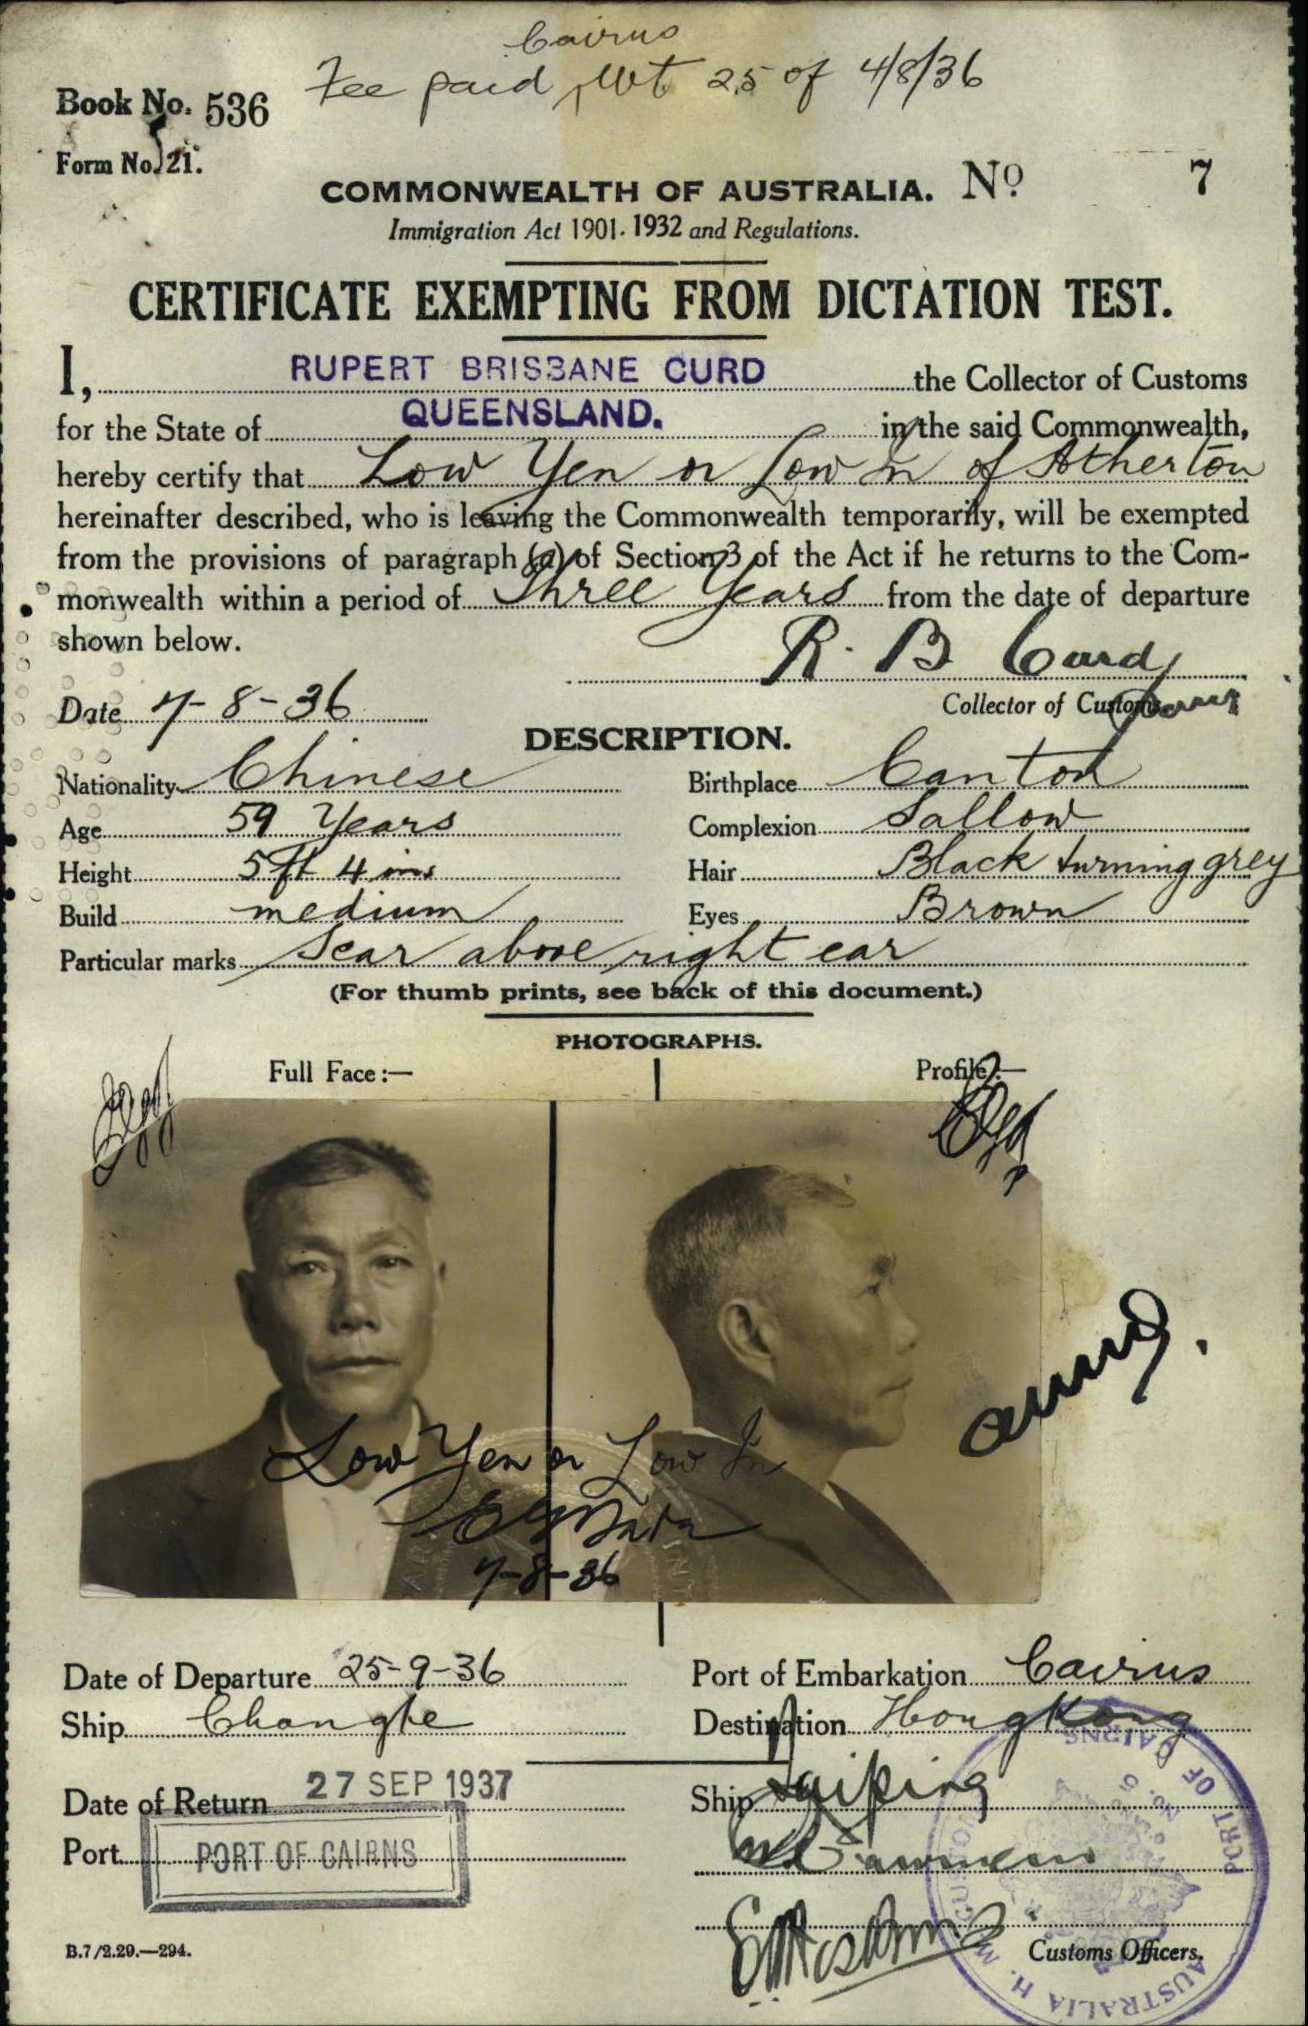 Cairns
Fee paid Rct 25 of 4/8/36
Book No. 536
Form No. 21.
COMMONWEALTH OF AUSTRALIA. No 7
Immigration Act 1901-1932 and Regulations.
CERTIFICATE EXEMPTING FROM DICTATION TEST.
I, RUPERT BRISBANE CURD the Collector of Customs
for the State of QUEENSLAND. in the said Commonwealth,
hereby certify that Low Yen or Low In of Atherton
hereinafter described, who is leaving the Commonwealth temporarily, will be exempted
from the provisions of paragraph (a) of Section 3 of the Act if he returns to the Com-
monwealth within a period of Three Years from the date of departure
shown below.
R. B Curd
Date 7-8-36 Collector of Customs
DESCRIPTION.
Nationality Chinese Birthplace Canton
Age 59 Years Complexion Sallow
Height 5 ft 4 ins Hair Black turning grey
Build medium Eyes Brown
Particular marks Scar above right ear
(For thumb prints, see back of this document.)
PHOTOGRAPHS.
Full Face :— Profile :—
Low Yen or Low In
7-8-36
Date of Departure 25-9-36 Port of Embarkation Cairns
Ship Changte Destination Hong Kong
Date of Return 27 SEP 1937 Ship Taiping
Port PORT OF CAIRNS
B.7/2.29.—294. Customs Officers.
PORT OF CAIRNS
No. 5
H. M. CUSTOMS AUSTRALIA